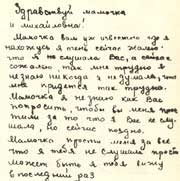 Здравствуй мамочка
и михайловна!
Мамочка вам уж известно где я
нахожусь я очень сейчас жалею
что я не слушала Вас, а сейчас
сожалею, так мне трудно я
незнаю никогда я не думала, что
мне придется так трудно.
Мамочка я не знаю как Вас
попросить чтобы вы меня прос
тили за то что я Вас не слу
шала, но сейчас поздно,
Мамочка прости меня за все
что я тебя не слушала прости
может быть я тебя вижу
в последний раз